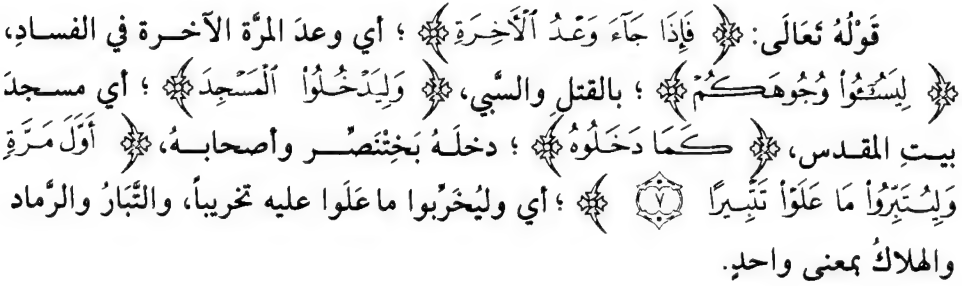 قَوْلُهُ تَعَالَى: ﴿ فَإِذَا جَآءَ وَعْدُ ٱلْأَخِرَةِ ﴾ ؛ أي وعدَ المرَّة الآخـرة في الفسـادِ،
﴿ لِيَسُـۥٓـُٔوا۟ وُجُوهَكُمْ ﴾ ؛ بالقتلِ والسَّبي، ﴿ وَلِيَدْخُلُوا۟ ٱلْمَسْجِدَ ﴾ ؛ أي مسـجدَ
بيـتِ المقـدس، ﴿ كَـمَا دَخَلُوهُ ﴾ ؛ دخلَـهُ بَخِتْنَصَّـر وأصحابـهُ، ﴿ أَوَّلَ مَـرَّةٍ
وَلِيُتَبِّرُوا۟ مَا عَلَوْا۟ تَتْبِيرًا ۝٧ ﴾ ؛ أي وليُخَرِّبوا ما عَلَوا عليه تخريباً، والتَّبَارُ والرَّماد
والهلاكُ بمعنى واحدٍ.